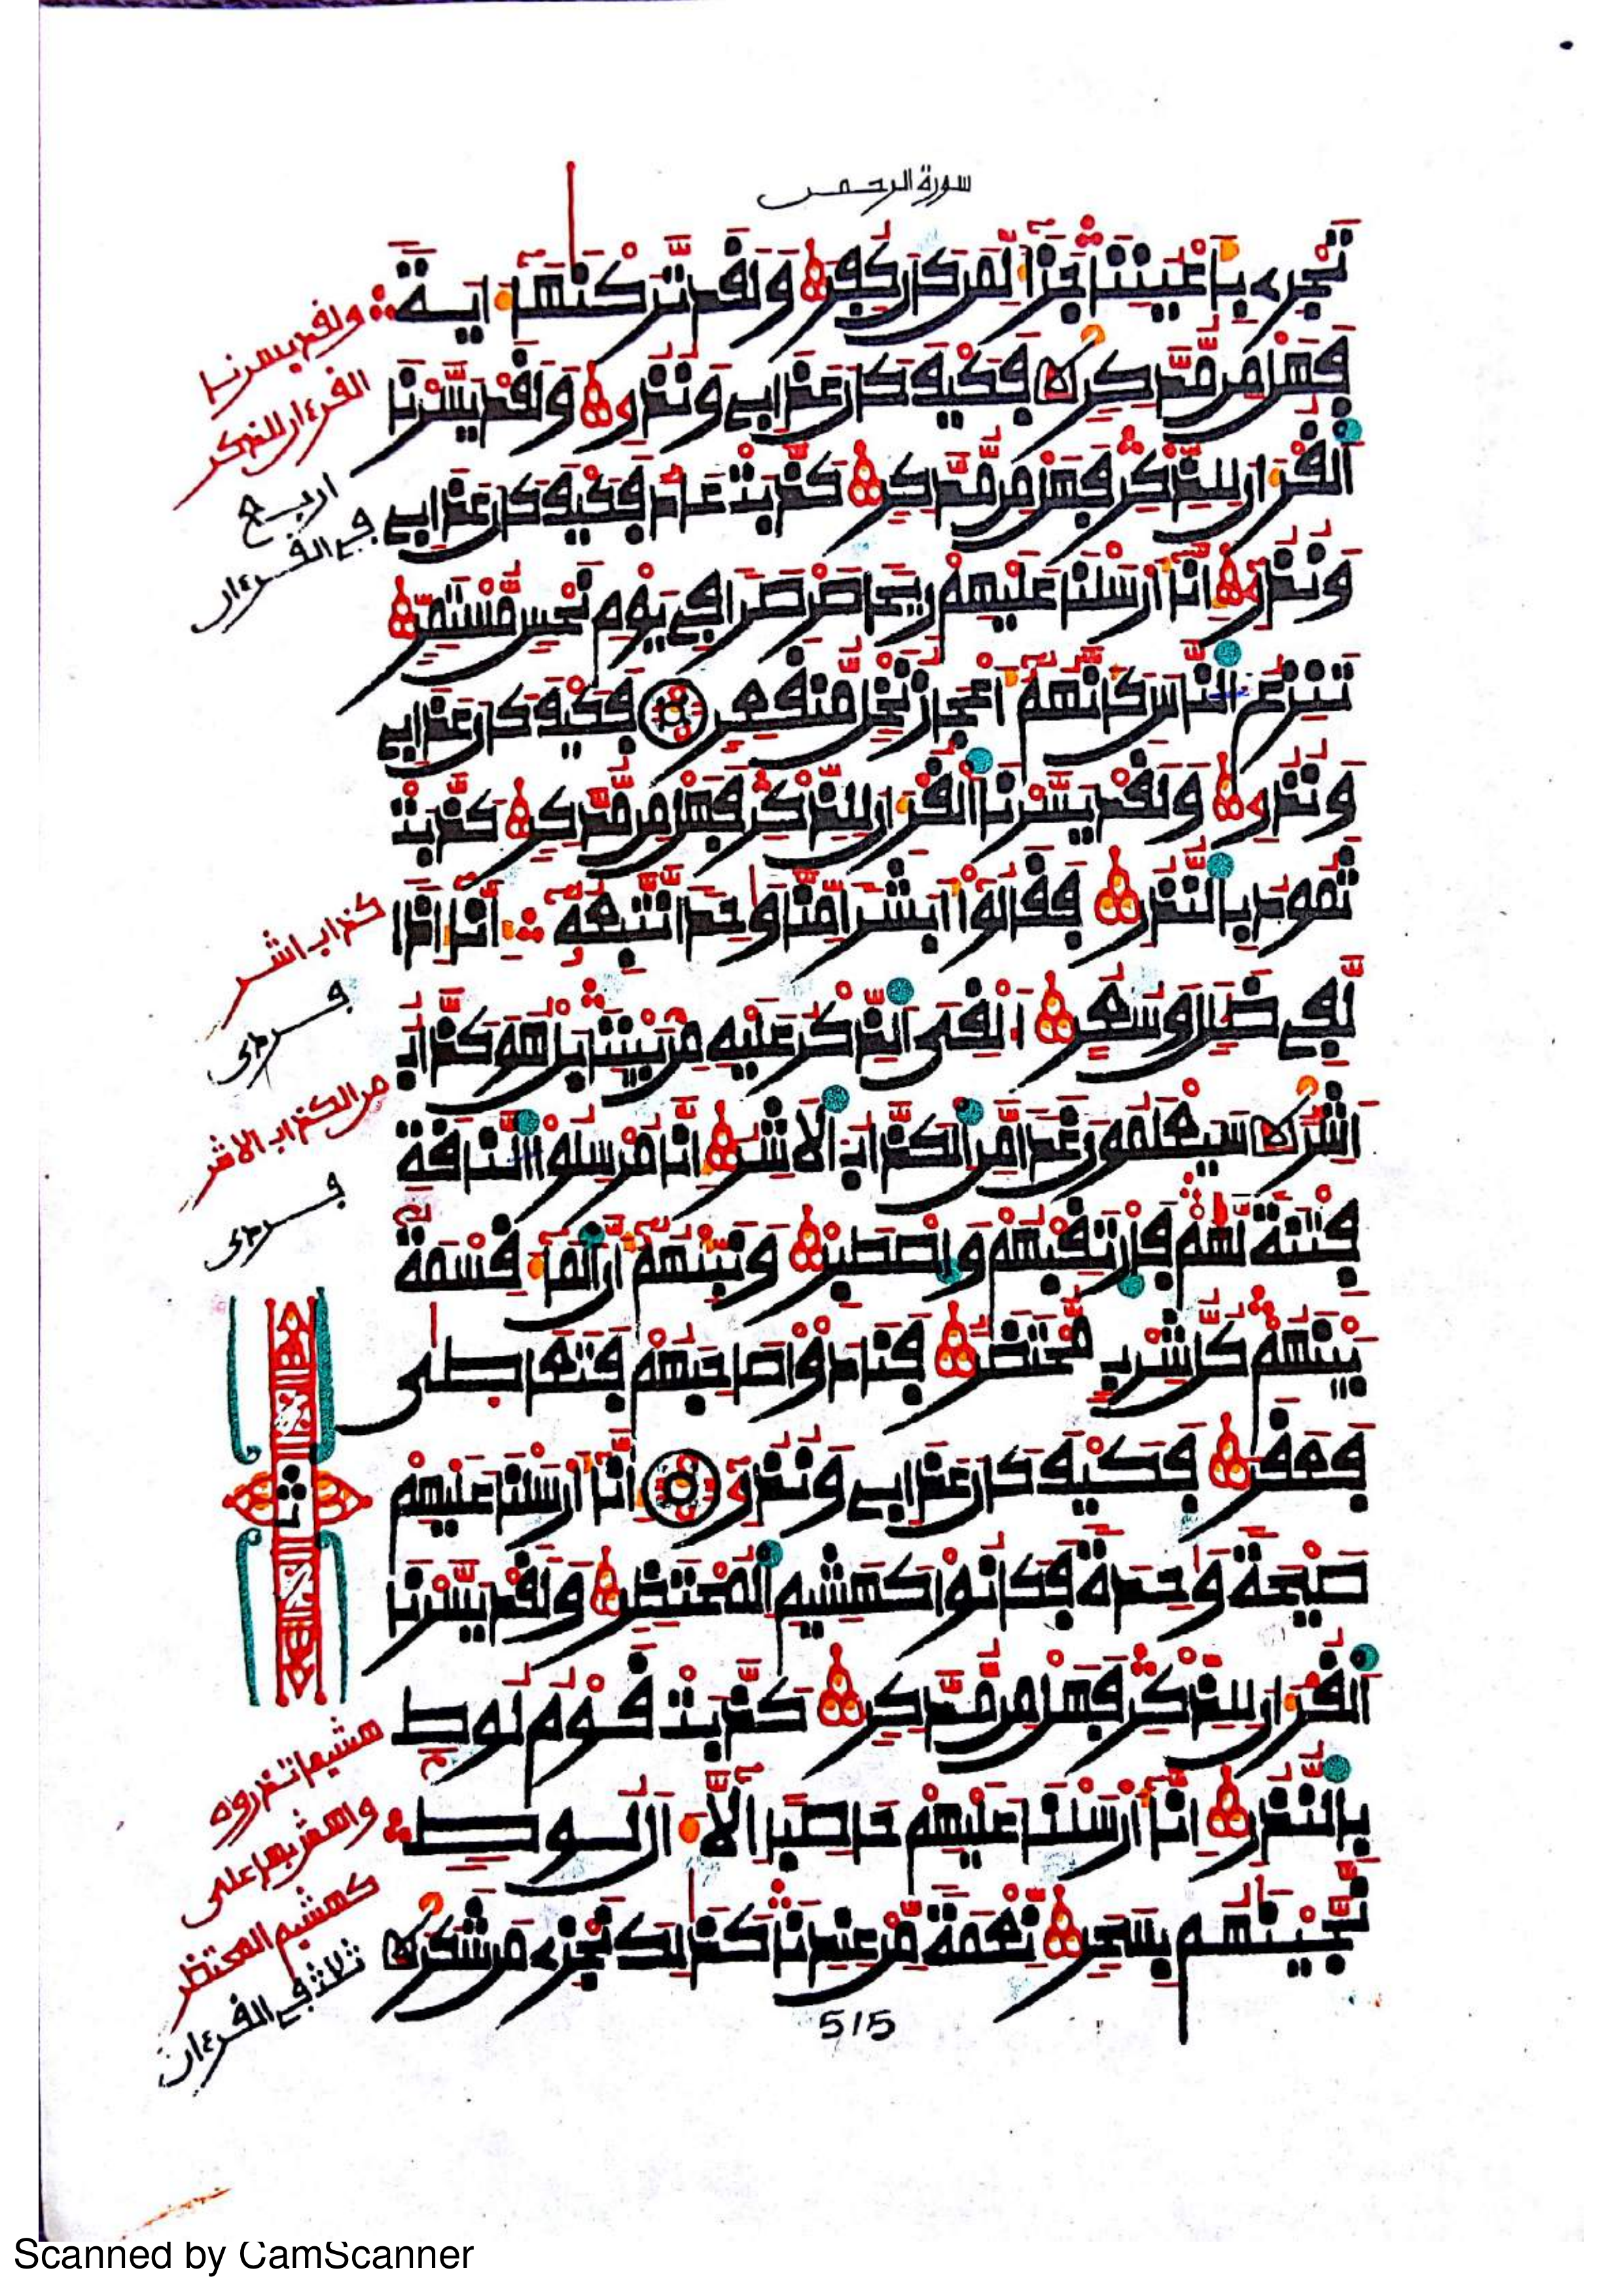 سورة الرحمن
تجرے باعيننا جزآء لمن كان كفر ولقد تركنٰهآ ءاية
فهل من مدكر فكيف كان عذابے ونذرے ولقد يسرنا
القرءان للذكر فهل من مدكر كذبت عاد فكيف كان عذابے
ونذرے انآ ارسلنا عليهم ريحا صرصرا في يوم نحس مستمر
تنزع الناس كانهمۥ أعجاز نخل منقعر فكيف كان عذابے
ونذرے ولقد يسرنا القرءان للذكر فهل من مدكر كذبت
ثمود بالنذر فقالوٓا أبشرا منا وٰحدا نتبعهۥٓ انآ إذا
لفي ضلٰل وسعر أءلقي الذكر عليه من بيننا بل هو كذاب
اشر سيعلمون غدا من الكذاب الاشر انا مرسلوا الناقة
فتنة لهم فارتقبهم واصطبر ونبئهمۥٓ أن المآء قسمة
بينهم كل شرب محتضر فنادوا صاحبهم فتعاطىٰ
فعقر فكيف كان عذابے ونذرے انآ ارسلنا عليهم
صيحة وٰحدة فكانوا كهشيم المحتظر ولقد يسرنا
القرءان للذكر فهل من مدكر كذبت قوم لوط
بالنذر انآ ارسلنا عليهم حاصبا الآ ءال لوط
نجينٰهم بسحر نعمة من عندنا كذٰلك نجزے من شكر
ولقد يسرنا
القرءان للذكر
اربع
في القرءان
كذاب اشر
فردى
من الكذاب الاشر
فردى
ثمن
هشيما تذروه
كهشيم المحتظر
في القرءان
515
Scanned by CamScanner